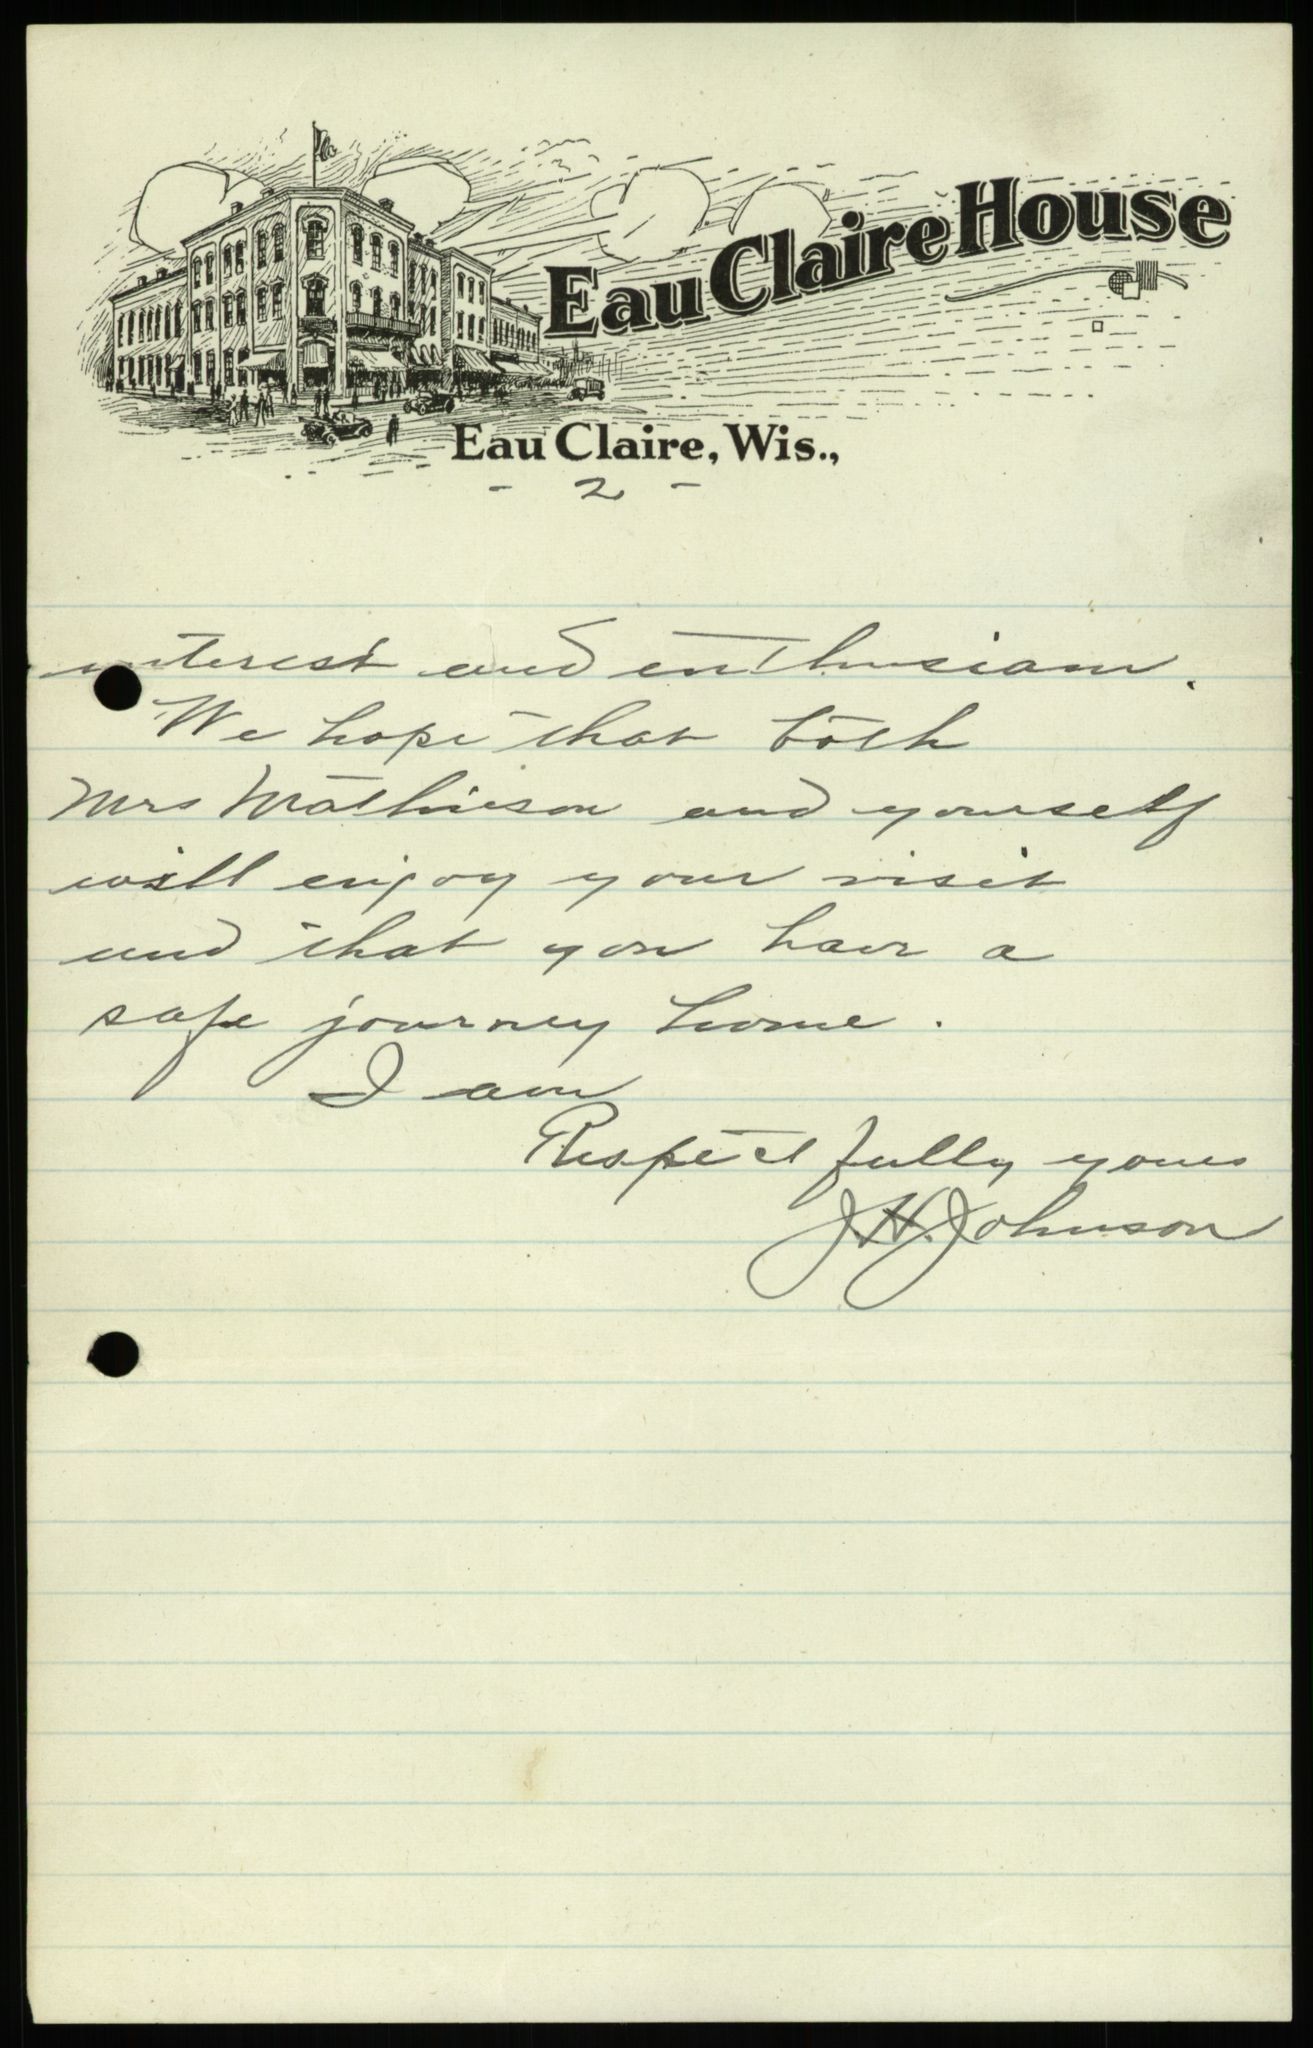 Eau Claire House
Eau Claire, Wis.,
- 2 -
interest and enthusiasm.
We hope that both
Mrs Mathieson and yourself
will enjoy your visit
and that you have a
safe journey home.
I am
Respectfully yours
J.H. Johnson